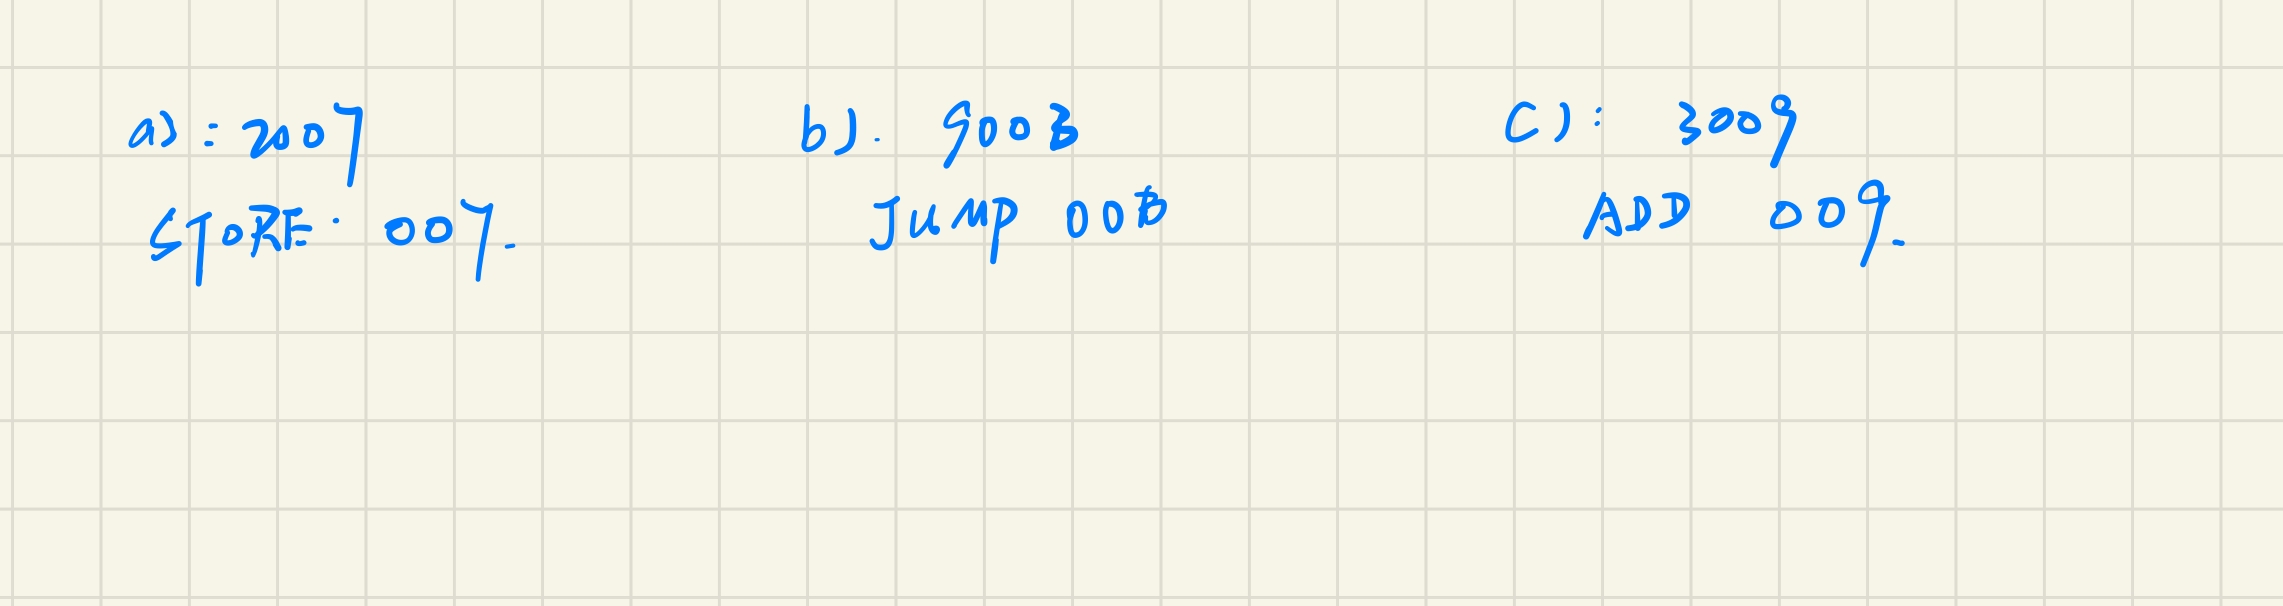 a): 2007
STORE: 007.
b). 900B
JUMP 00B
c): 3009
ADD 009.